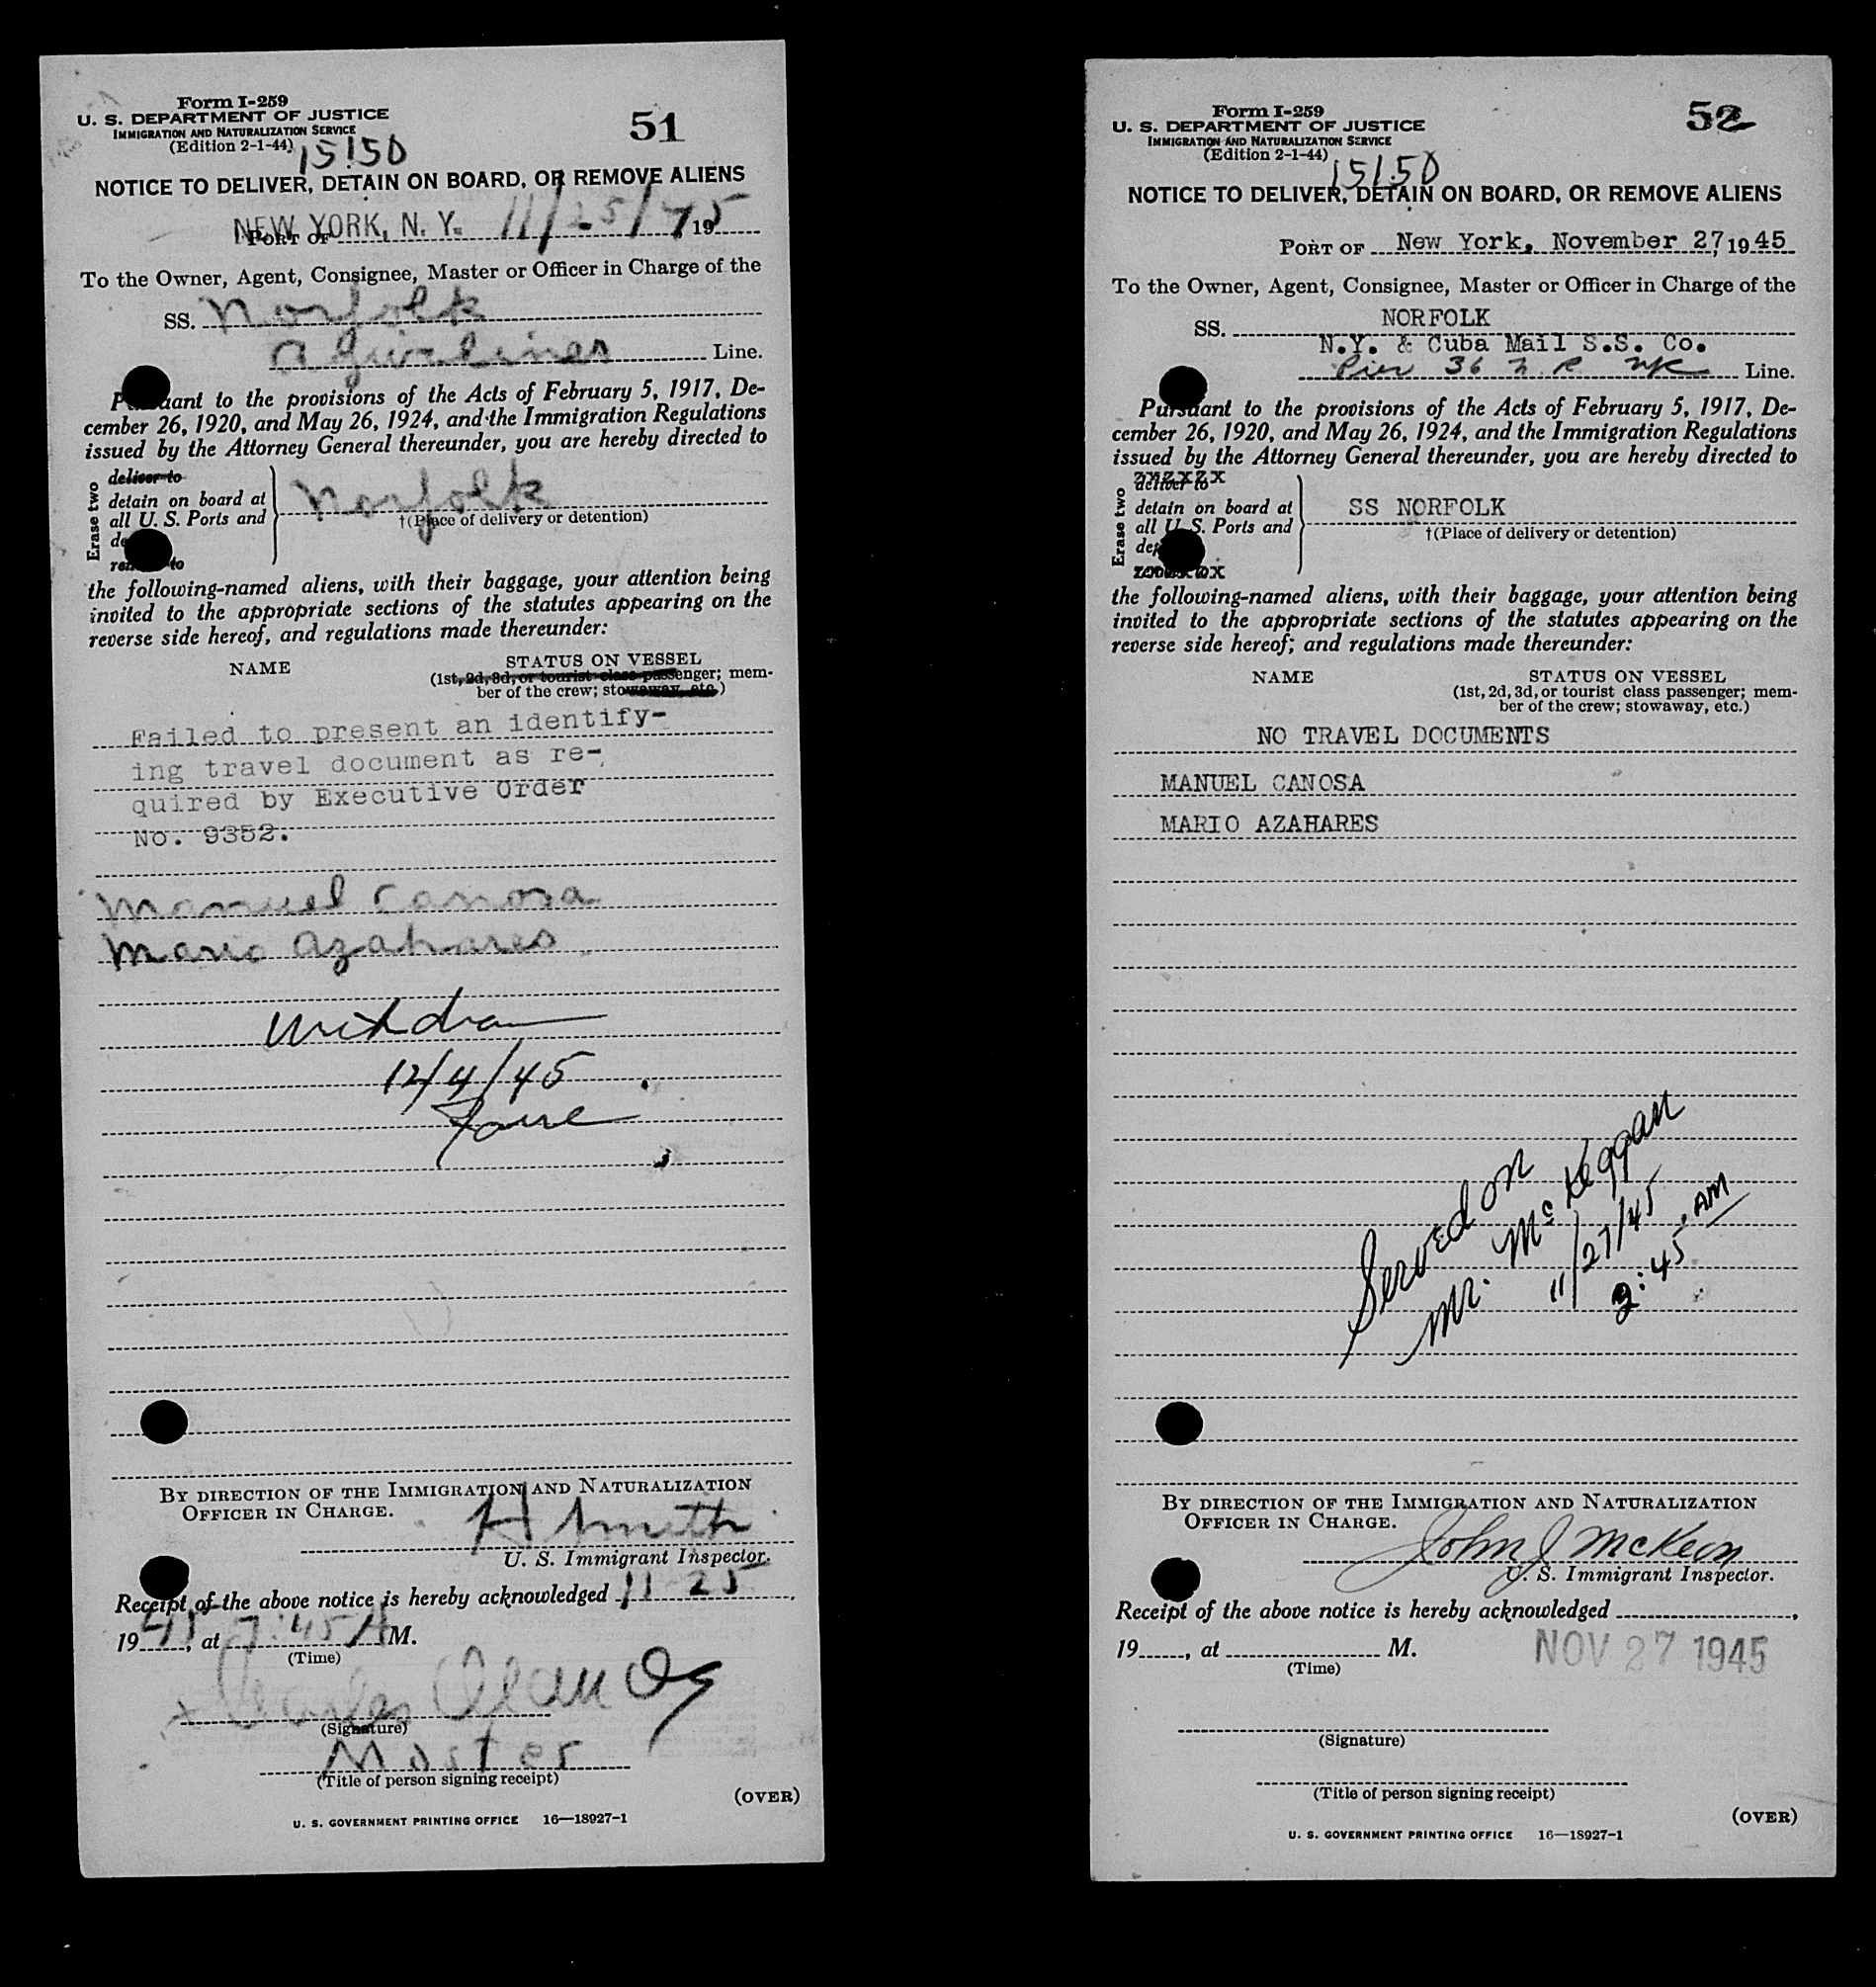 Form I-259
U. S. DEPARTMENT OF JUSTICE
IMMIGRATION AND NATURALIZATION SERVICE
(Edition 2-1-44)
15150
51
NOTICE TO DELIVER, DETAIN ON BOARD, OR REMOVE ALIENS
NEW YORK, N. Y. 11/25/45
PORT OF 19
To the Owner, Agent, Consignee, Master or Officer in Charge of the
SS. Norfolk
Agwilines Line.
Pursuant to the provisions of the Acts of February 5, 1917, De-
cember 26, 1920, and May 26, 1924, and the Immigration Regulations
issued by the Attorney General thereunder, you are hereby directed to
Erase two
deliver to
detain on board at
all U. S. Ports and
Norfolk
†(Place of delivery or detention)
the following-named aliens, with their baggage, your attention being
invited to the appropriate sections of the statutes appearing on the
reverse side hereof, and regulations made thereunder:
NAME
STATUS ON VESSEL
(1st, 2d, 3d, or tourist class passenger; mem-
ber of the crew; stowaway, etc.)
Failed to present an identify-
ing travel document as re-
quired by Executive Order
No. 9352.
Manuel Canosa
Mario Azahares
12/4/45
BY DIRECTION OF THE IMMIGRATION AND NATURALIZATION
OFFICER IN CHARGE.
H Smith
U. S. Immigrant Inspector.
Receipt of the above notice is hereby acknowledged 11 25,
1945, at 7:45 A M.
(Time)
(Signature)
Master
(Title of person signing receipt)
(OVER)
U. S. GOVERNMENT PRINTING OFFICE 16—18927-1
Form I-259
U. S. DEPARTMENT OF JUSTICE
IMMIGRATION AND NATURALIZATION SERVICE
(Edition 2-1-44)
15150
52
NOTICE TO DELIVER, DETAIN ON BOARD, OR REMOVE ALIENS
PORT OF New York, November 27, 1945
To the Owner, Agent, Consignee, Master or Officer in Charge of the
SS. NORFOLK
N.Y. & Cuba Mail S.S. Co.
Pier 36 N R NYC Line.
Pursuant to the provisions of the Acts of February 5, 1917, De-
cember 26, 1920, and May 26, 1924, and the Immigration Regulations
issued by the Attorney General thereunder, you are hereby directed to
Erase two
deliver to
detain on board at
all U. S. Ports and
SS NORFOLK
†(Place of delivery or detention)
the following-named aliens, with their baggage, your attention being
invited to the appropriate sections of the statutes appearing on the
reverse side hereof; and regulations made thereunder:
NAME
STATUS ON VESSEL
(1st, 2d, 3d, or tourist class passenger; mem-
ber of the crew; stowaway, etc.)
NO TRAVEL DOCUMENTS
MANUEL CANOSA
MARIO AZAHARES
Served on
Mr. McKeggan
11/27/45
9:45 AM
BY DIRECTION OF THE IMMIGRATION AND NATURALIZATION
OFFICER IN CHARGE.
John J McKeon
U. S. Immigrant Inspector.
Receipt of the above notice is hereby acknowledged ,
19 , at M.
(Time)
NOV 27 1945
(Signature)
(Title of person signing receipt)
(OVER)
U. S. GOVERNMENT PRINTING OFFICE 16—18927-1